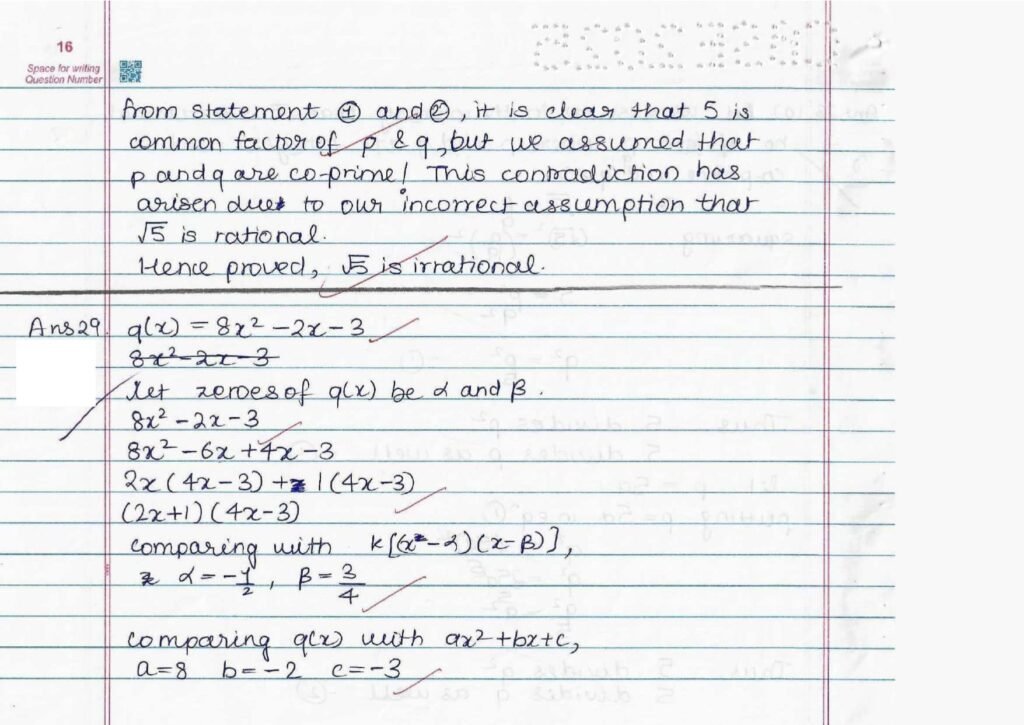 16
Space for writing
Question Number
from statement ① and ②, it is clear that 5 is
common factor of p & q, but we assumed that
p and q are co-prime! This contradiction has
arisen due to our incorrect assumption that
√5 is rational.
Hence proved, √5 is irrational.
Ans29. q(x) = 8x² - 2x - 3
8x² - 2x - 3
let zeroes of q(x) be α and β.
8x² - 2x - 3
8x² - 6x + 4x - 3
2x(4x-3) + 1(4x-3)
(2x+1)(4x-3)
comparing with k[(x-α)(x-β)],
α = -1/2, β = 3/4
comparing q(x) with ax²+bx+c,
a=8 b=-2 c=-3